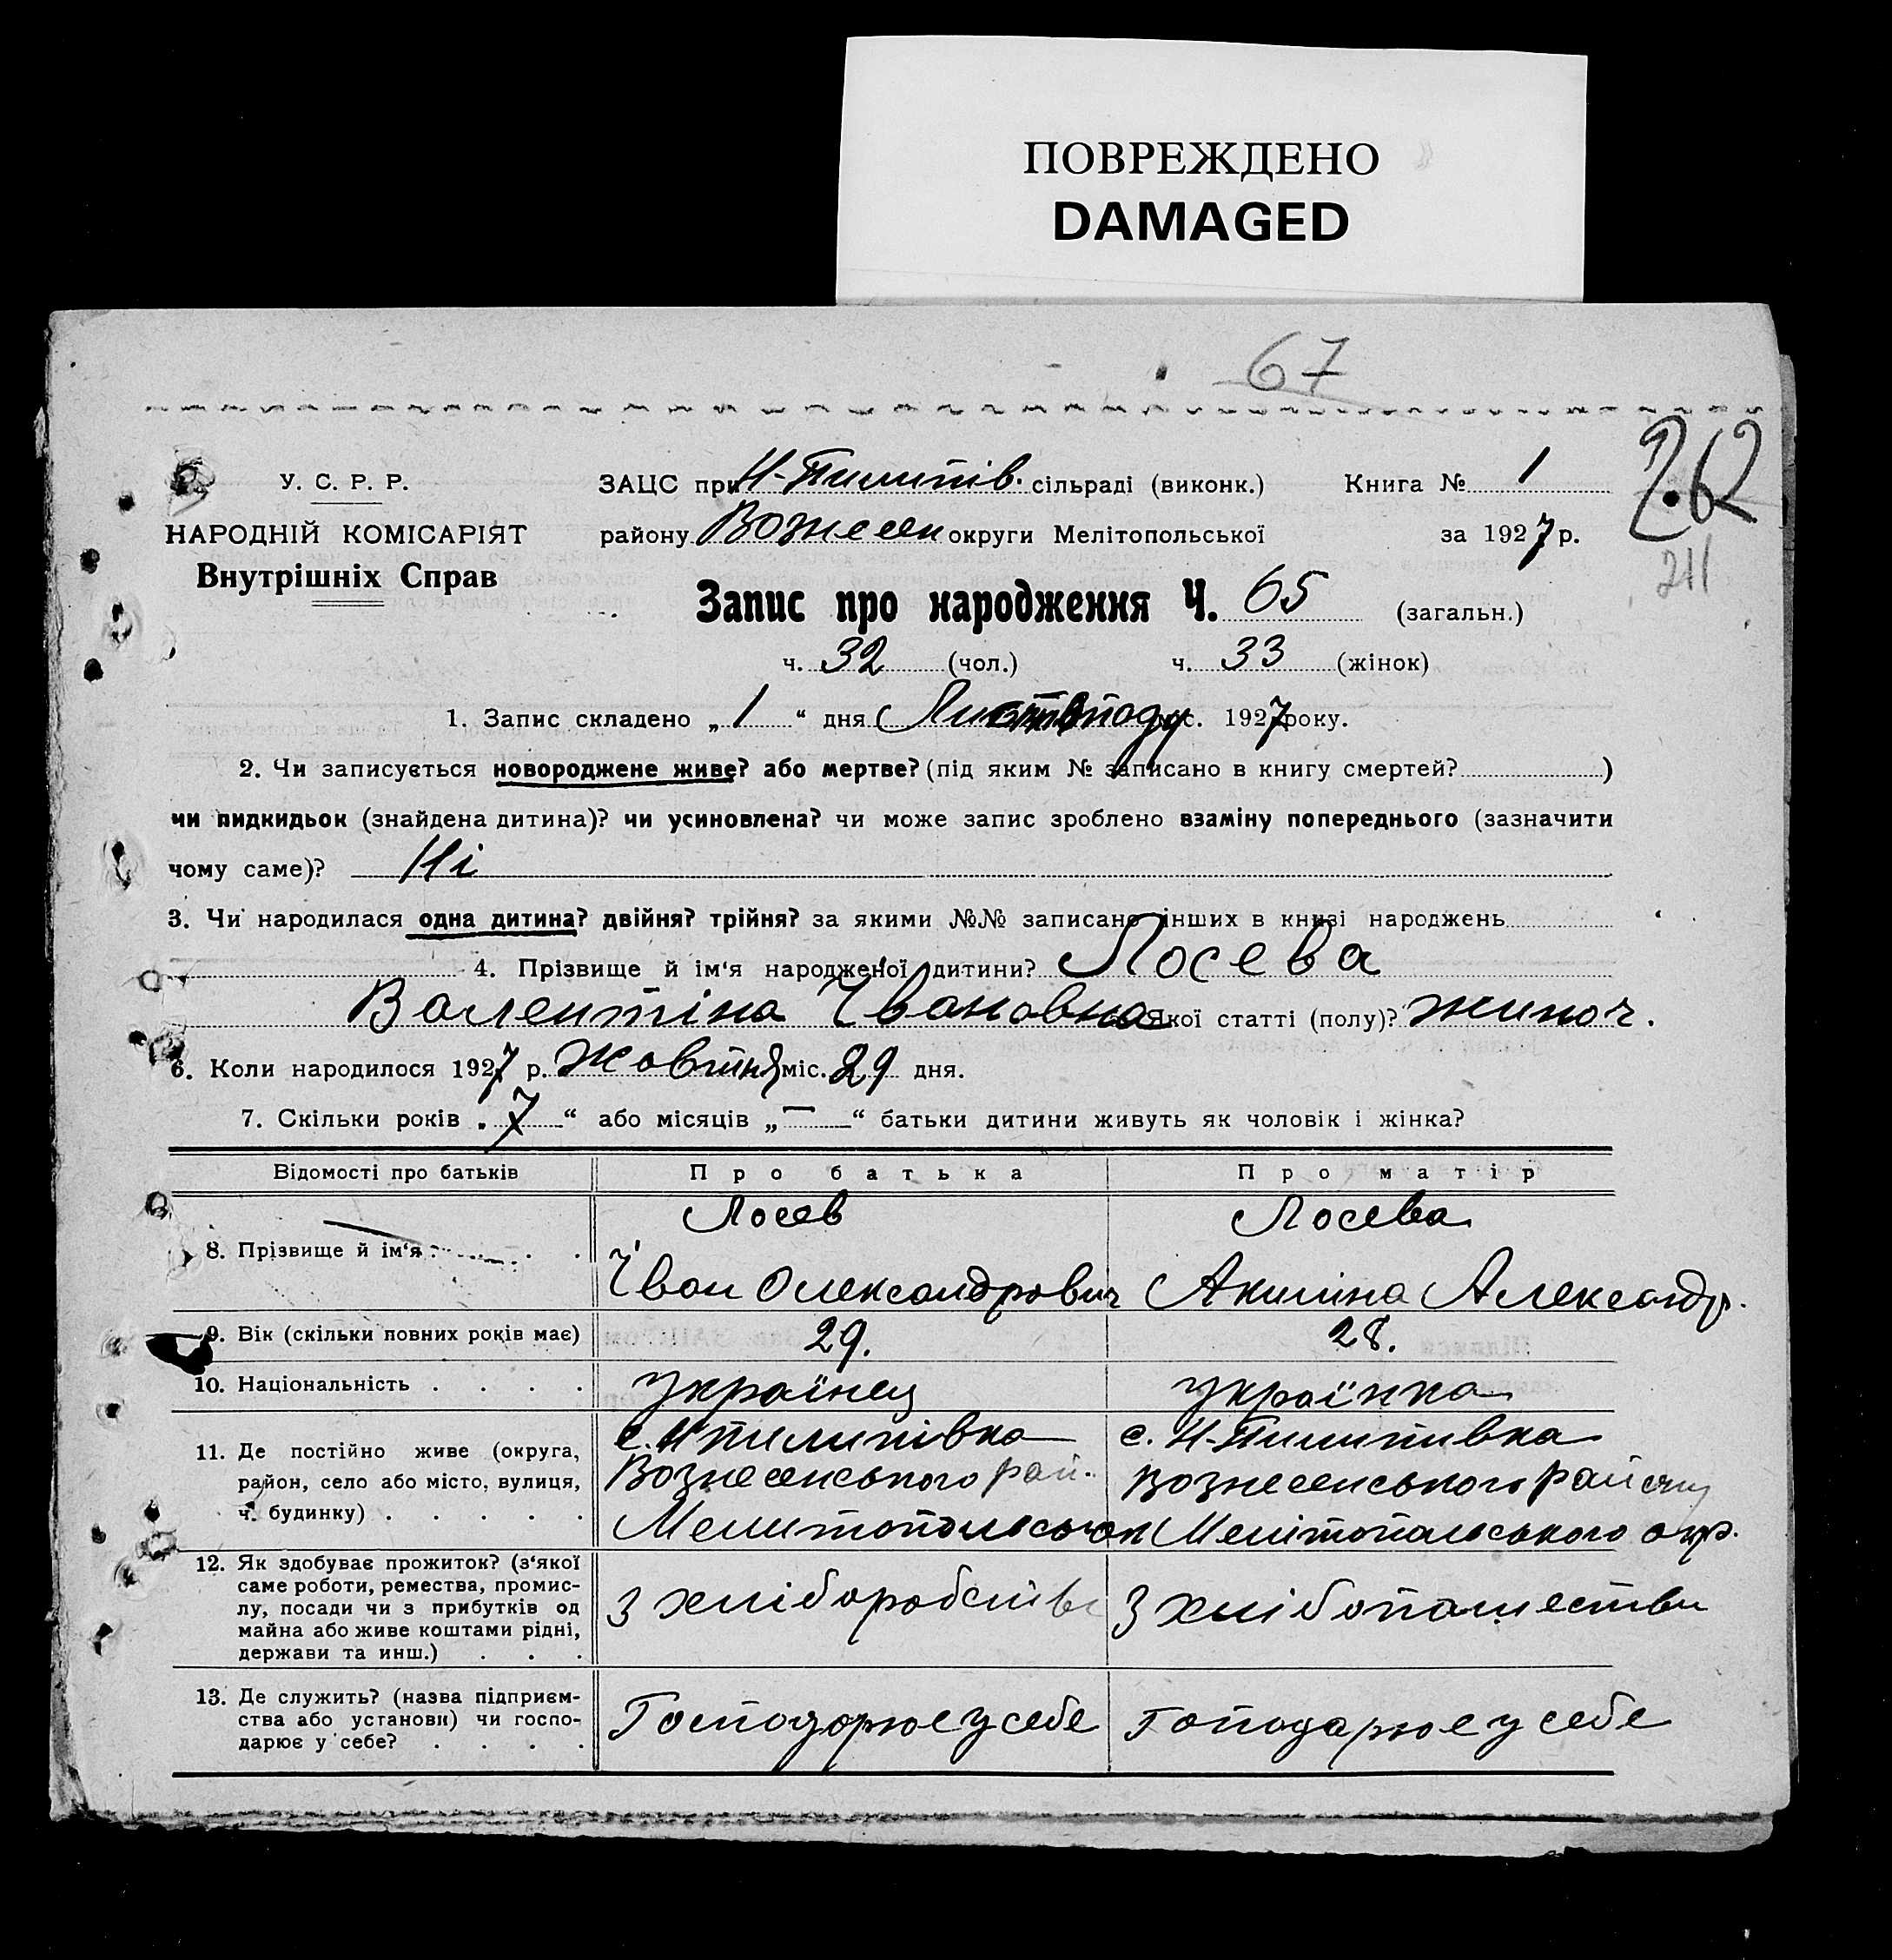 ПОВРЕЖДЕНО
DAMAGED
67
262
211
У. С. Р. Р.
НАРОДНІЙ КОМІСАРІЯТ
Внутрішніх Справ
ЗАЦС при Н-Пилипів. сільраді (виконк.) Книга № 1
району Вознесен округи Мелітопольської за 1927 р.
Запис про народження Ч. 65 (загальн.)
ч. 32 (чол.) ч. 33 (жінок)
1. Запис складено „ 1 “ дня Листопаду міс. 1927 року.
2. Чи записується новороджене живе? або мертве? (під яким № записано в книгу смертей? )
чи пидкидьок (знайдена дитина)? чи усиновлена? чи може запис зроблено взаміну попереднього (зазначити
чому саме)? Ні
3. Чи народилася одна дитина? двійня? трійня? за якими №№ записано інших в книзі народжень
4. Прізвище й ім‘я народженої дитини? Лосева
Валентіна Івановна Якої статті (полу)? жиноч.
6. Коли народилося 1927 р. Жовтня міс. 29 дня.
7. Скільки років „ 7 “ або місяців „ — “ батьки дитини живуть як чоловік і жінка?
Відомості про батьків Про батька Про матір
8. Прізвище й ім‘я Лосев Лосева
Іван Олександрович Акилина Александр.
9. Вік (скільки повних років має) 29. 28.
10. Національність . . . . українец українка
11. Де постійно живе (округа, с. Н Пилипівка с. Н-Пилипивка
район, село або місто, вулиця, Вознесенського рай. Вознесенського району
ч. будинку) . . . . . Мелитопольськ Мелітопольського окр.
12. Як здобуває прожиток? (з‘якої
саме роботи, ремества, промис-
лу, посади чи з прибутків од З хліборобства З хлібопашества
майна або живе коштами рідні,
держави та инш.) . . .
13. Де служить? (назва підприєм-
ства або установи) чи госпо- Господорює у себе Гоподарює у себе
дарює у себе? . . . .